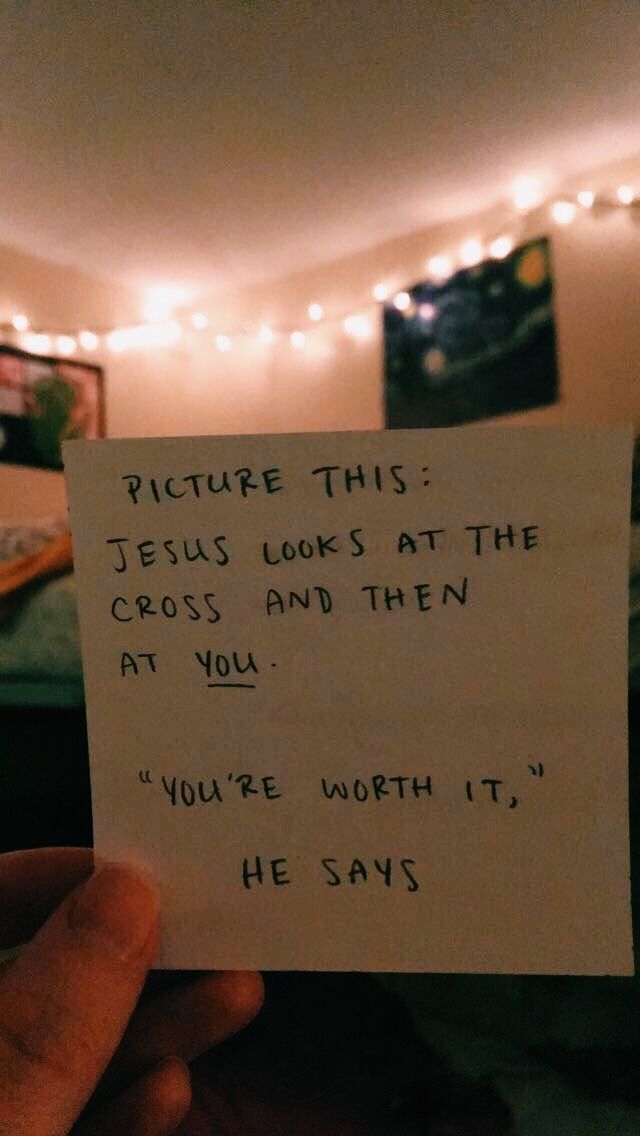 PICTURE THIS:
JESUS LOOKS AT THE
CROSS AND THEN
AT YOU.
"YOU'RE WORTH IT,"
HE SAYS